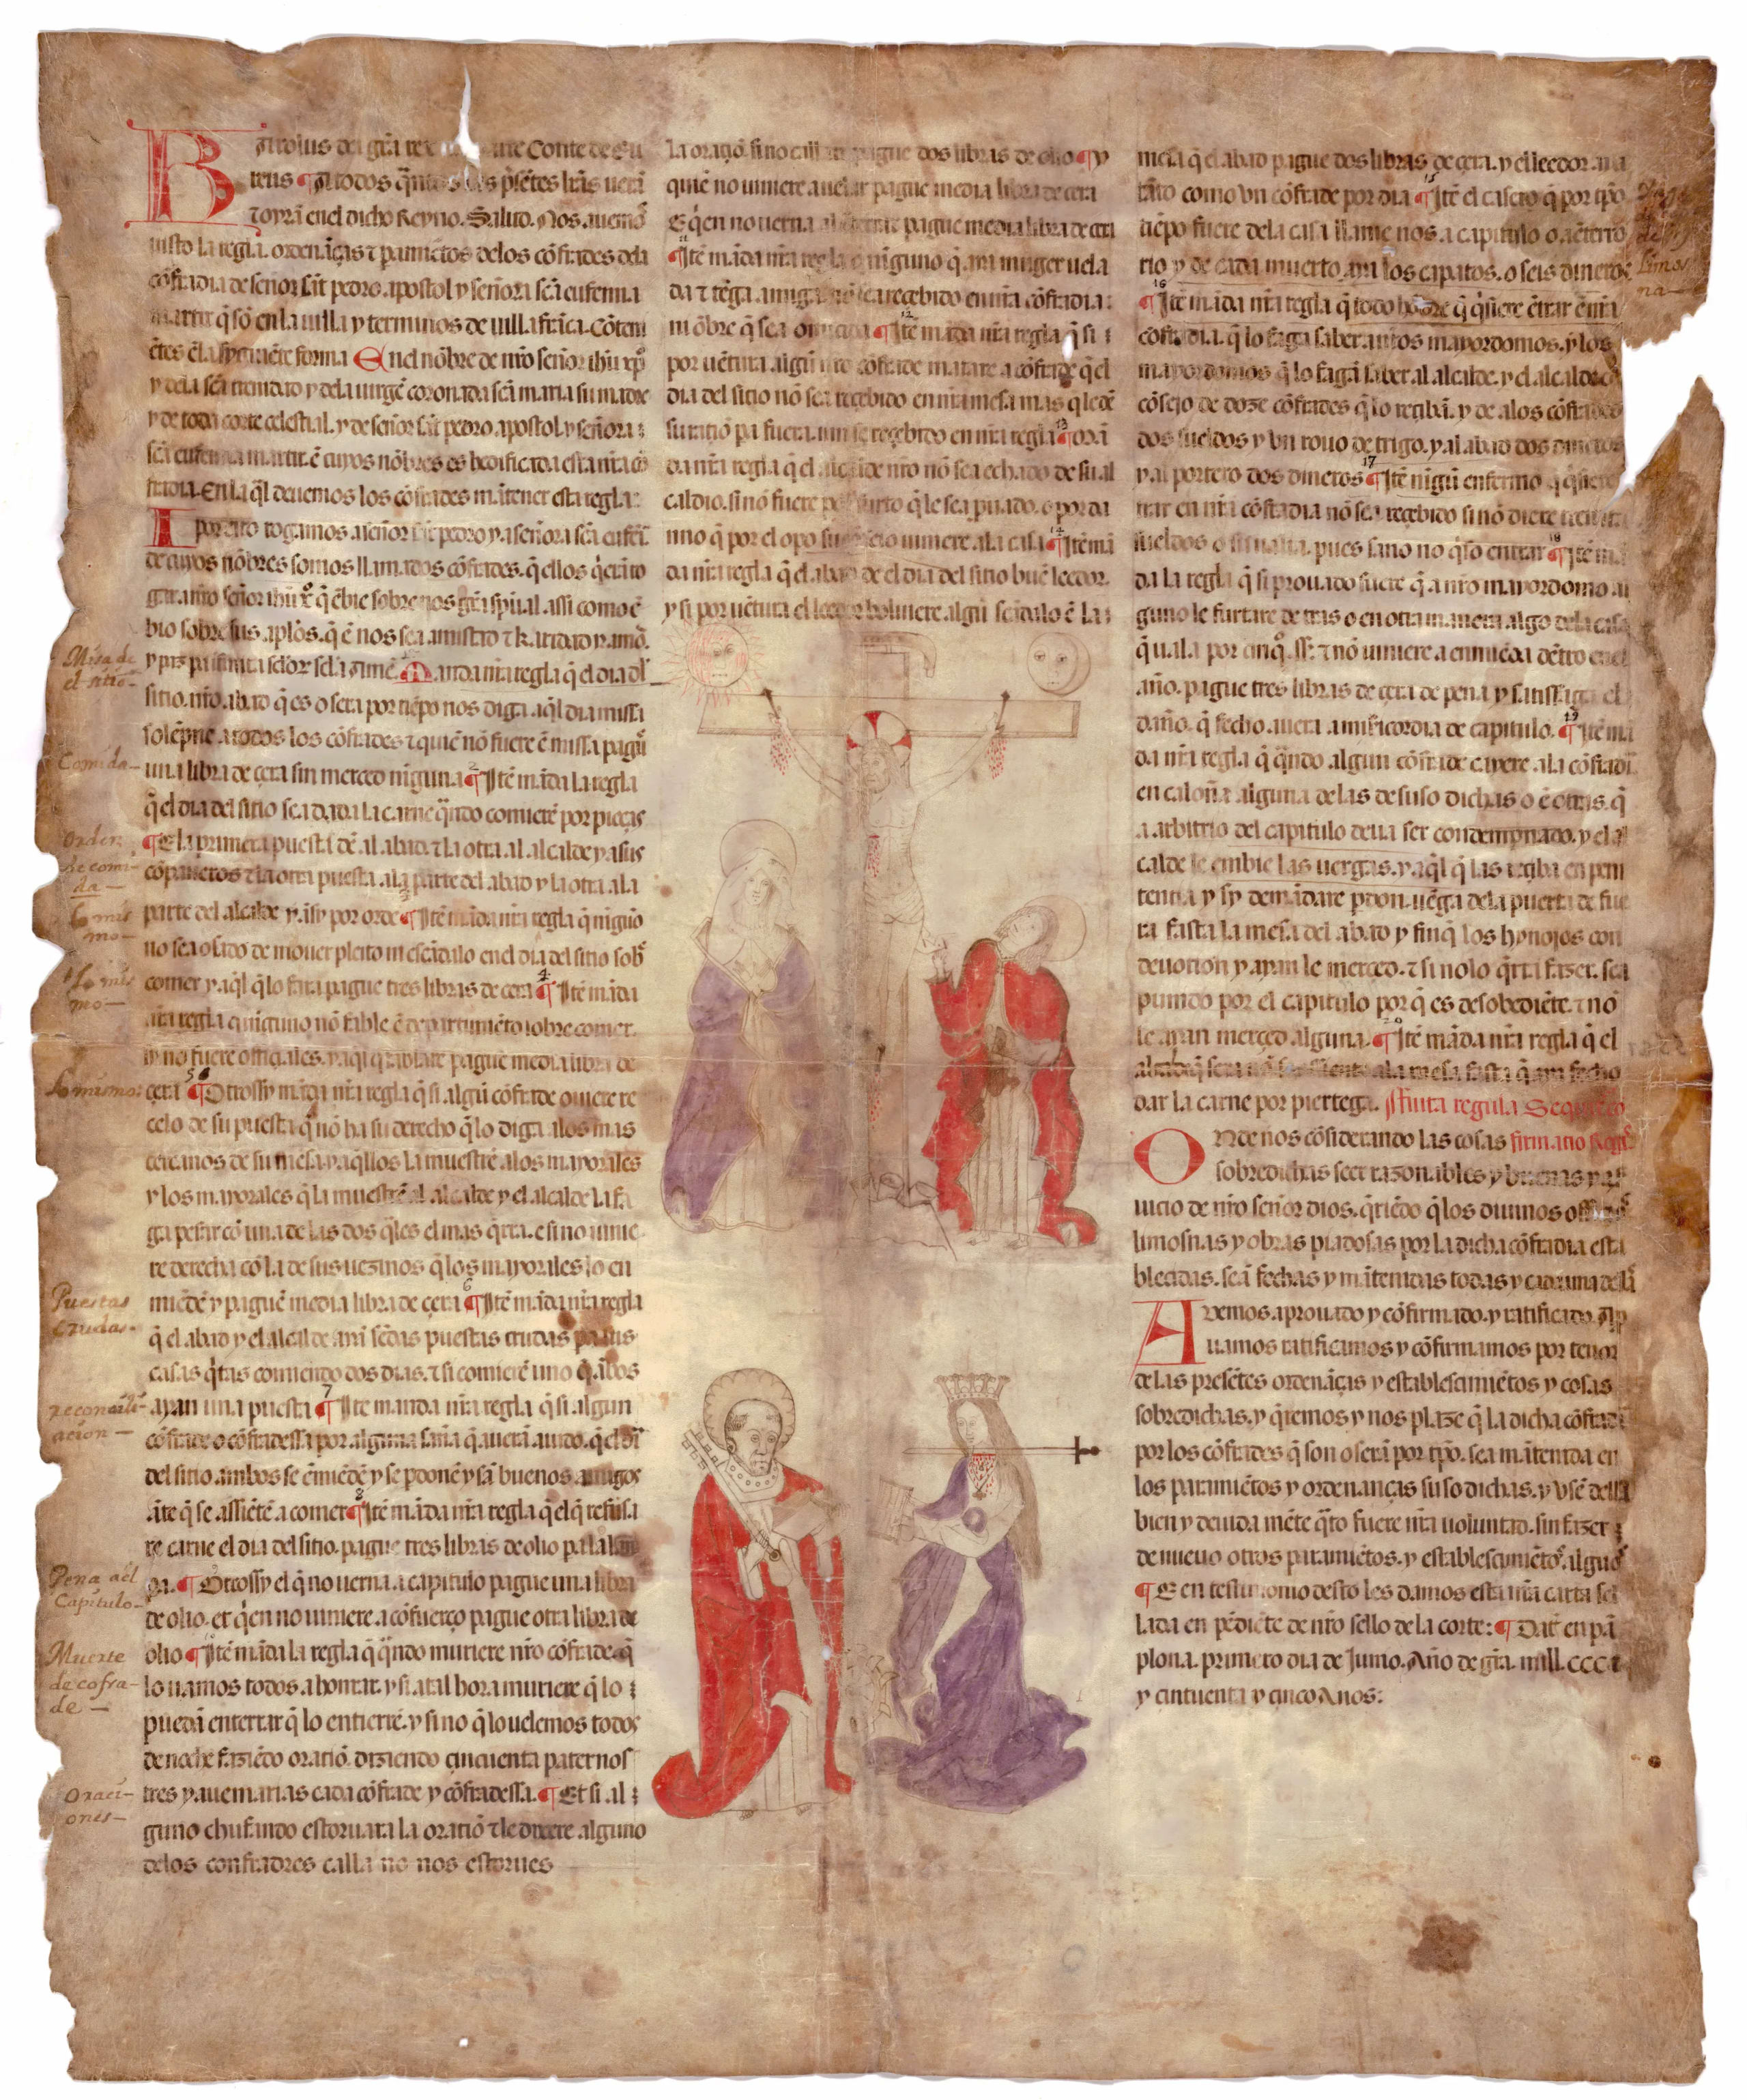 dei gra Conte de Eu
reus ¶ A todos psetes lras
en el dicho Reyno. Salud. Nos auemos
uisto la regla. ordenaças τ paramietos de los cofrades dela
cofradia de señor sat pedro apostol y señora sca eufemia
martir q so en la uilla y terminos de uilla fraca. Coten
etes e la syguiete forma En el nobre de nro señor ihu xpo
y dela sca trenidad y dela uirge coronada sca maria su madre
y de toda corte celestial. y de señor sat pedro apostol y señora
sca eufemia martir. e cuyos nobres es hedificada esta nra co
fradia. En la ql deuemos los cofrades matener esta regla:
I por esto rogamos a señor sat pedro y a señora sca eufe
de cuyos nobres somos llamados cofrades. q ellos
nro señor ihu xo q ebie sobre nos gra spual. assi como e
bio sobre sus aplos. q e nos sea amistad τ karidad y amor.
y paz Manda nra regla q el dia dl
sitio. nro abad q es o sera por tiepo nos diga aql dia missa
solepne a todos los cofrades τ quie no fuere e missa pague
una libra de çera sin merced niguna ¶ Ite mada la regla
q el dia del sitio sea dada la carne qndo comiere por pieças
¶ E la primera puesta de al abad. τ la otra al alcalde y a sus
copañeros τ la otra puesta a la parte del abad y la otra a la
parte del alcalde y asy por orde ¶ Ite mada nra regla q niguo
no sea osado de mouer pleito ni escadalo en el dia del sitio sob
comer y aql q lo fara pague tres libras de cera ¶ Ite mada
nra regla q niguno no fable e departimeto sobre comer.
sy no fuere officiales. y aql q fablare pague media libra de
çera ¶ Otrossy mada nra regla q si algu cofrade ouiere re
celo de su puesta q no ha su derecho q lo diga a los mas
cercanos de su mesa. y aqllos la muestre a los mayorales
y los mayorales q la muestre al alcalde y el alcalde la fa
ga pesar co una de las dos qles el mas qrra. e si no uinie
re derecha co la de sus uezinos q los mayorales lo en
miede y pague media libra de çera ¶ Ite mada nra regla
q el abad y el alcalde aya sedas puestas crudas pa sus
casas qtas comiendo dos dias. τ si comiere uno q abos
ayan una puesta ¶ Ite manda nra regla q si algun
cofrade o cofradessa por alguna saña q auera auido. q el dia
del sitio ambos se emiede y se pdone y sea buenos amigos
ate q se assiete a comer ¶ Ite mada nra regla q el q refusa
re carne el dia del sitio. pague tres libras de olio pa la
pa. ¶ Otrossy el q no uerna a capitulo pague una libra
de olio. et qen no uiniere a cofuerço pague otra libra de
olio ¶ Ite mada la regla q qndo muriere nro cofrade. q
lo uamos todos a honrar. y si a tal hora muriere q lo
pueda enterrar q lo entierre. y si no q lo uelemos todos
de noche faziedo oratio. diziendo cincuenta paternos
tres y auemarias cada cofrade y cofradessa. ¶ Et si al
guno chufando estoruara la oratio τ le dixere alguno
delos confradres calla no nos estorues
Misa de
el sitio
Comida
Orden
de comi-
da
Lo mis
mo
Lo mis
mo
Lo mismo
Puestas
crudas
reconcili-
acion
Pena del
Capitulo
Muerte
de cofra-
de
Oraci-
ones
la oratio. si no callare pague dos libras de olio ¶ Y
quie no uiniere a uelar pague media libra de cera
E qen no uerna al enterrar pague media libra de cera
¶ Ite mada nra regla q ninguno q aya muger uela
da τ tega amiga no sea reçebido en nra cofradia:
ni obre q sea ¶ Ite mada nra regla q si
por uetura algu nro cofrade matare a cofrade q el
dia del sitio no sea reçebido en nra mesa mas q le de
su ratio pa fuera. nin se reçebido en nra regla ¶ Ora
da nra regla q el alcalde nro no sea echado de su al
caldio. si no fuere por furto q le sea puado. o por da
nno q por el opo su oficio uiniere a la casa ¶ Ite ma
da nra regla q el abad de el dia del sitio bue leedor.
y si por uetura el leedor boluiere algu scadalo e la
mesa q el abad pague dos libras de çera. y el leedor aya
tato como vn cofrade por dia ¶ Ite el casero q por tpo
tiepo fuere dela casa llame nos a capitulo o a eterro
rio y de cada muerto aya los capatos. o seis dineros
¶ Ite mada nra regla q todo hobre q qsiere etrar e nra
cofradia. q lo faga saber a nros mayordomos. y los
mayordomos q lo faga saber al alcalde. y el alcalde co
cosejo de doze cofrades q lo reçiba. y de a los cofrades
dos sueldos y vn rouo de trigo. y al abad dos dineros
y al portero dos dineros ¶ Ite nigu enfermo q qsiere
trar en nra cofradia no sea reçebido si no diere treinta
sueldos o su ualia. pues sano no qso entrar ¶ Ite ma
da la regla q si prouado fuere q a nro mayordomo al
guno le furtare de tras o en otra manera algo dela casa
q uala por cinq. ss. τ no uiniere a enmieda detro en el
año. pague tres libras de çera de pena y satisfaga el
daño. q fecho auera a misericordia de capitulo. ¶ Ite ma
da nra regla q qndo algun cofrade cayere a la cofradia
en caloña alguna de las de suso dichas o e otras. q
a arbitrio del capitulo deua ser condempnado. y el al
calde le embie las uergas. y aql q las reçiba en peni
tentia y sy demadare pdon. uega dela puerta de fue
ra fasta la mesa del abad y finq los hynojos con
deuotion y ayan le merced. τ si no lo qrra fazer. sea
punido por el capitulo por q es desobediete. τ no
le ayan merced alguna. ¶ Ite mada nra regla q el
alcalde q sera no se assiente a la mesa fasta q aya fecho
dar la carne por piertega. Finita regula Sequitur
Onde nos cosiderando las cosas firmatio Regis
sobredichas seer razonables y buenas y a
uicio de nro señor dios. qriedo q los diuinos offiçios
limosnas y obras piadosas por la dicha cofradia esta
bleçidas. sea fechas y matenidas todas y cada una dellas
Auemos. aprouado y cofirmado. y ratificado. Ap
uamos ratificamos y cofirmamos por tenor
delas presetes ordenaças y establescimietos y cosas
sobredichas. y qremos y nos plaze q la dicha cofradia
por los cofrades q son o sera por tpo. sea matenida en
los paramietos y ordenanças suso dichas. y vse dellas
bien y deuida mete qto fuere nra uoluntad. sin fazer
de nueuo otros paramietos. y establescimietos algunos
¶ E en testimonio desto les damos esta nra carta se
lada en pediete de nro sello de la corte: ¶ Dat en pa
plona. primero dia de Junio. Año de gra. mill. cccc
y cinquenta y çinco Anos:
Limos
na